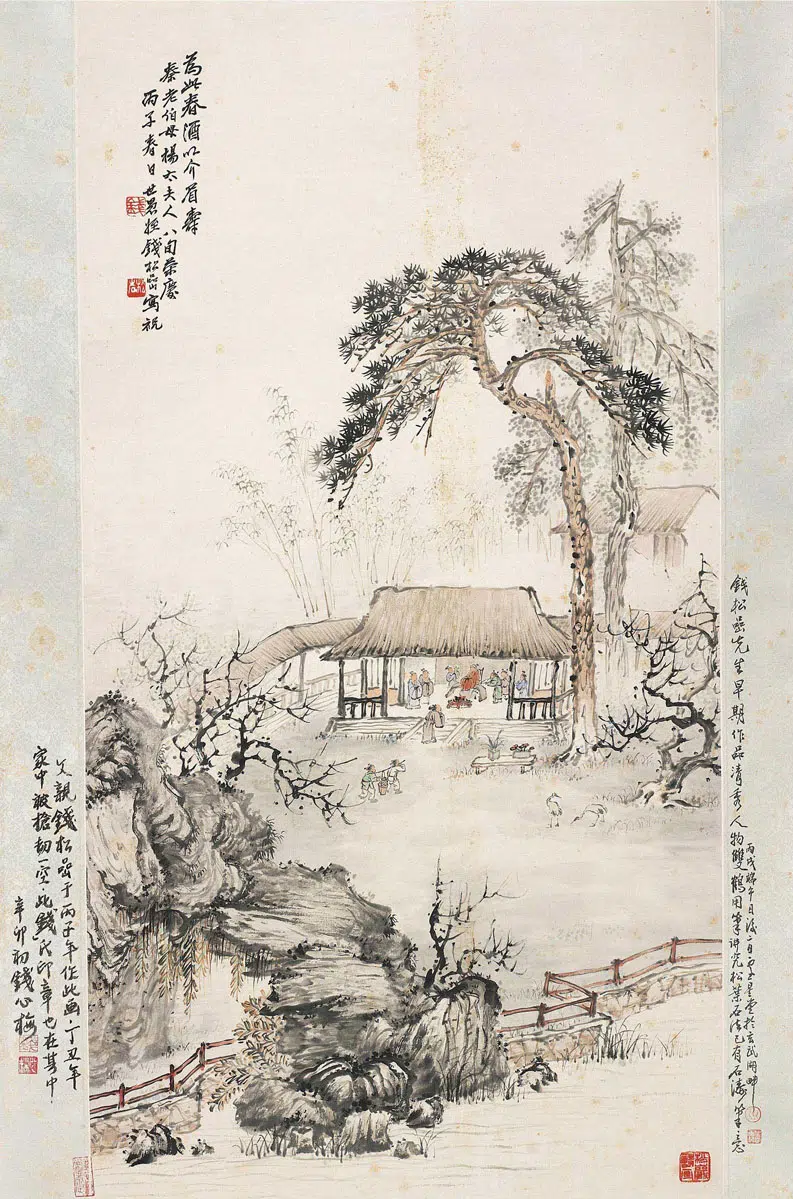 為此春酒以介眉壽
秦老伯母楊太夫人八旬榮慶
丙子春日世愚姪錢松喦寫祝
錢松喦先生早期作品清秀人物雙鶴用筆講究松葉石法已有石濤筆意
丙戌端午日後二日於玄武湖畔
父親錢松喦于丙子年作此画丁丑年
家中被搶劫一空此錢氏印章也在其中
辛卯初錢心梅